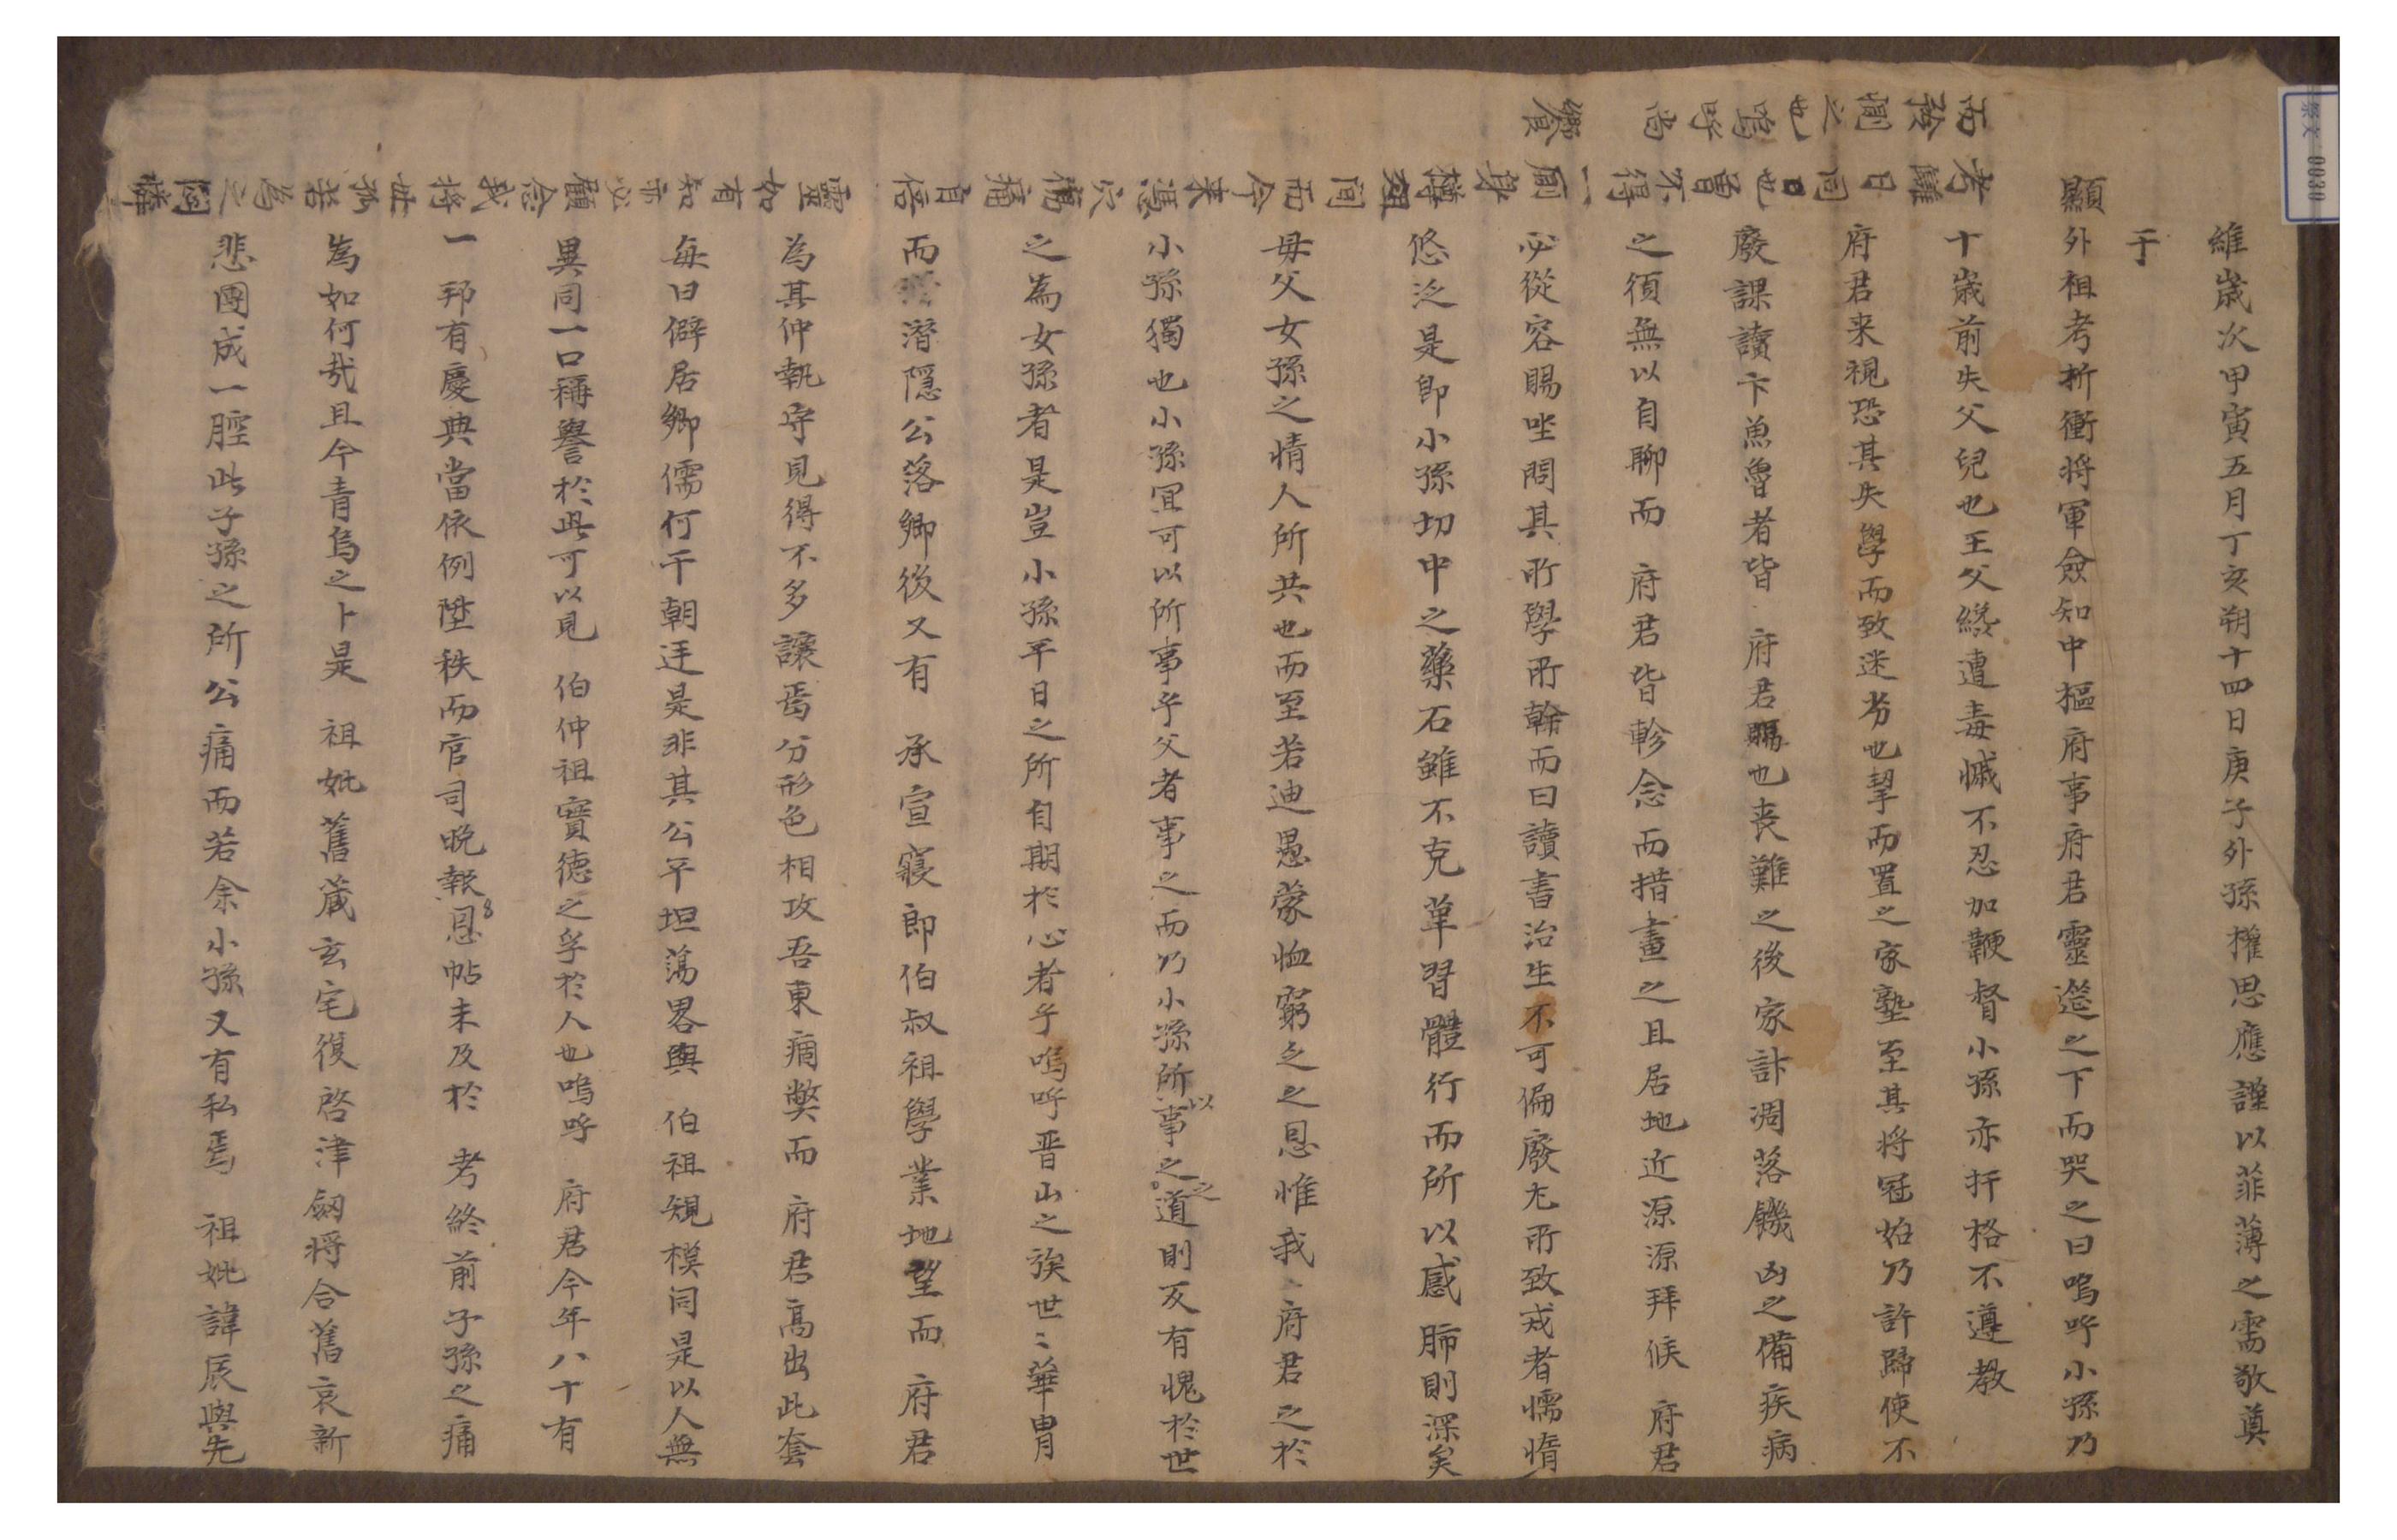 維歲次甲寅五月丁亥朔十四日庚子外孫權思應謹以菲薄之需敬奠
于
顯外祖考折衝將軍僉知中樞府事府君靈筵之下而哭之曰嗚呼小孫乃
十歲前失父兒也王父繞遭毒慽不忍加鞭督小孫亦扞格不遵教
府君来視恐其失學而致迷劣也挈而置之家塾至其將冠始乃許歸使不
廢課讀卞魚魯者皆 府君賜也喪難之後家計凋落饑凶之備疾病
之須無以自聊而 府君皆軫念而措畫之且居地近源源拜候 府君
必從容賜坐問其所學所幹而曰讀書治生不可偏廢尤所致戒者懦惰
悠泛是卽小孫切中之藥石雖不克革習體行而所以感肺則深矣
毋父女孫之情人所共也而至若迪愚蒙恤窮乏之恩惟我 府君之於
小孫獨也小孫宜可以所事乎父者事之而乃小孫所以事之之道則反有愧於世
之為女孫者是豈小孫平日之所自期於心者乎嗚呼晋山之族世〻華冑
而潛隱公落鄉後又有 承宣寢郎伯叔祖學業地望而 府君
為其仲執守見得不多讓焉分形色相攻吾東痼弊而 府君高出此套
每曰僻居鄉儒何干朝廷是非其公平坦蕩畧與 伯祖規模同是以人無
異同一口稱譽於此可以見 伯仲祖實德之孚於人也嗚呼 府君今年八十有
一邦有慶典當依例陞秩而官司晩報恩帖未及於 考終前子孫之痛
為如何哉且今青烏之卜是 祖妣舊藏玄宅復啓津劒將合舊哀新
悲團成一腔此子孫之所公痛而若余小孫又有私焉 祖妣諱辰與先
考諱日同也曾不得一厠身樽爼間而今来憑穴慟痛自倍 靈如有知亦必顧念我將世孤若為之悶
而矜惻之也嗚呼尚 饗
祭文 0030